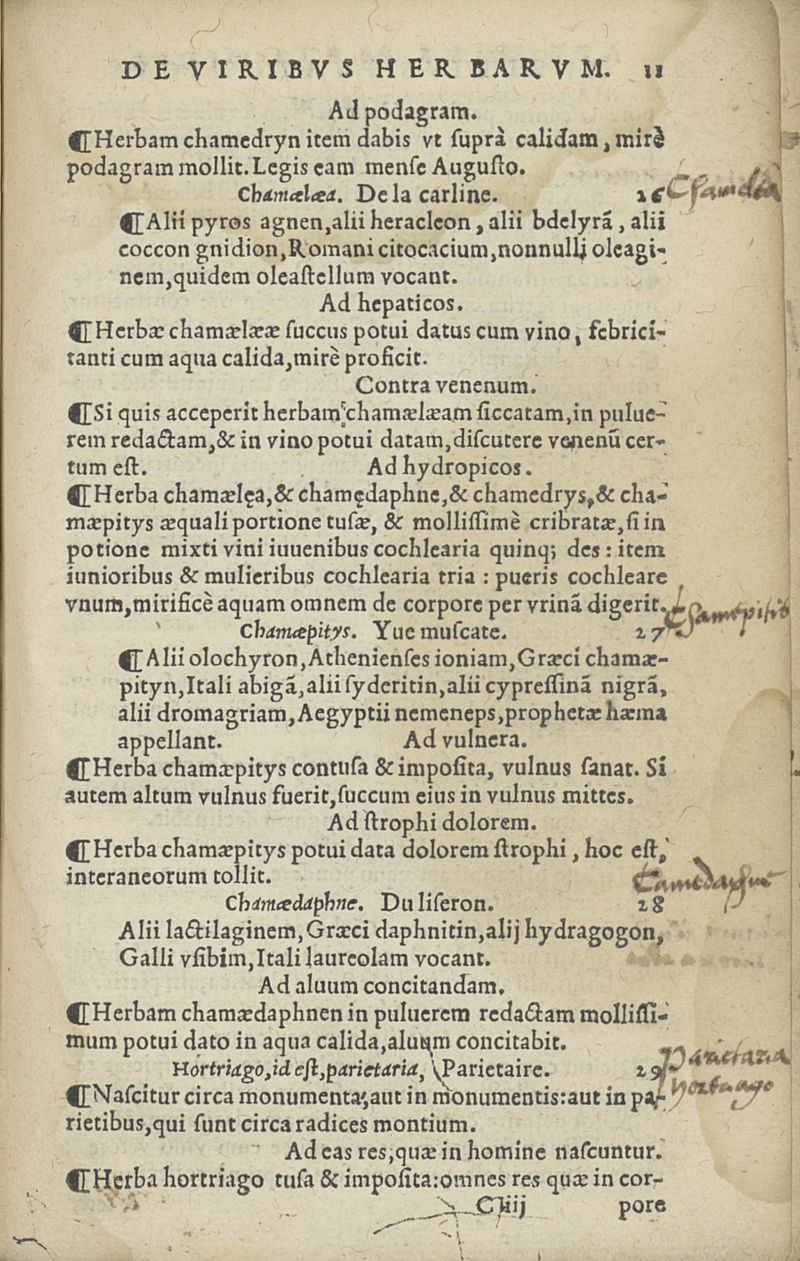 DE VIRIBVS HERBARVM. 11
Ad podagram.
¶Herbam chamedryn item dabis vt suprà calidam, mirè
podagram mollit. Legis eam mense Augusto.
Chamælæa. De la carline. 26 Chamelea
¶Alii pyros agnen, alii heracleon, alii bdelyrā, alii
coccon gnidion, Romani citocacium, nonnulli oleagi-
nem, quidem oleastellum vocant.
Ad hepaticos.
¶Herbæ chamælææ succus potui datus cum vino, febrici-
tanti cum aqua calida, mirè proficit.
Contra venenum.
¶Si quis acceperit herbam chamælæam siccatam, in pulue-
rem redactam, & in vino potui datam, discutere venenū cer-
tum est. Ad hydropicos.
¶Herba chamælęa, & chamędaphne, & chamedrys, & cha-
mæpitys æquali portione tusæ, & mollissimè cribratæ, si in
potione mixti vini iuuenibus cochlearia quinq; des: item
iunioribus & mulieribus cochlearia tria: pueris cochleare
vnum, mirificè aquam omnem de corpore per vrinā digerit.
Chamæpitys. Yue muscate. 27 Chamepitis
¶Alii olochyron, Athenienses ioniam, Græci chamæ-
pityn, Itali abigā, alii syderitin, alii cypressinā nigrā,
alii dromagriam, Aegyptii nemeneps, prophetæ hæma
appellant. Ad vulnera.
¶Herba chamæpitys contusa & imposita, vulnus sanat. Si
autem altum vulnus fuerit, succum eius in vulnus mittes.
Ad strophi dolorem.
¶Herba chamæpitys potui data dolorem strophi, hoc est,
interaneorum tollit.
Chamædaphne. Du liseron. 28 Camedaphne
Alii lactilaginem, Græci daphnitin, alij hydragogon,
Galli vsibim, Itali laureolam vocant.
Ad aluum concitandam.
¶Herbam chamædaphnen in puluerem redactam mollissi-
mum potui dato in aqua calida, aluum concitabit.
Hortriago, id est, parietaria, Parietaire. 29 parietaria
hortriago
¶Nascitur circa monumenta, aut in monumentis: aut in pa-
rietibus, qui sunt circa radices montium.
Ad eas res, quæ in homine nascuntur.
¶Herba hortriago tusa & imposita: omnes res quæ in cor-
C iij pore